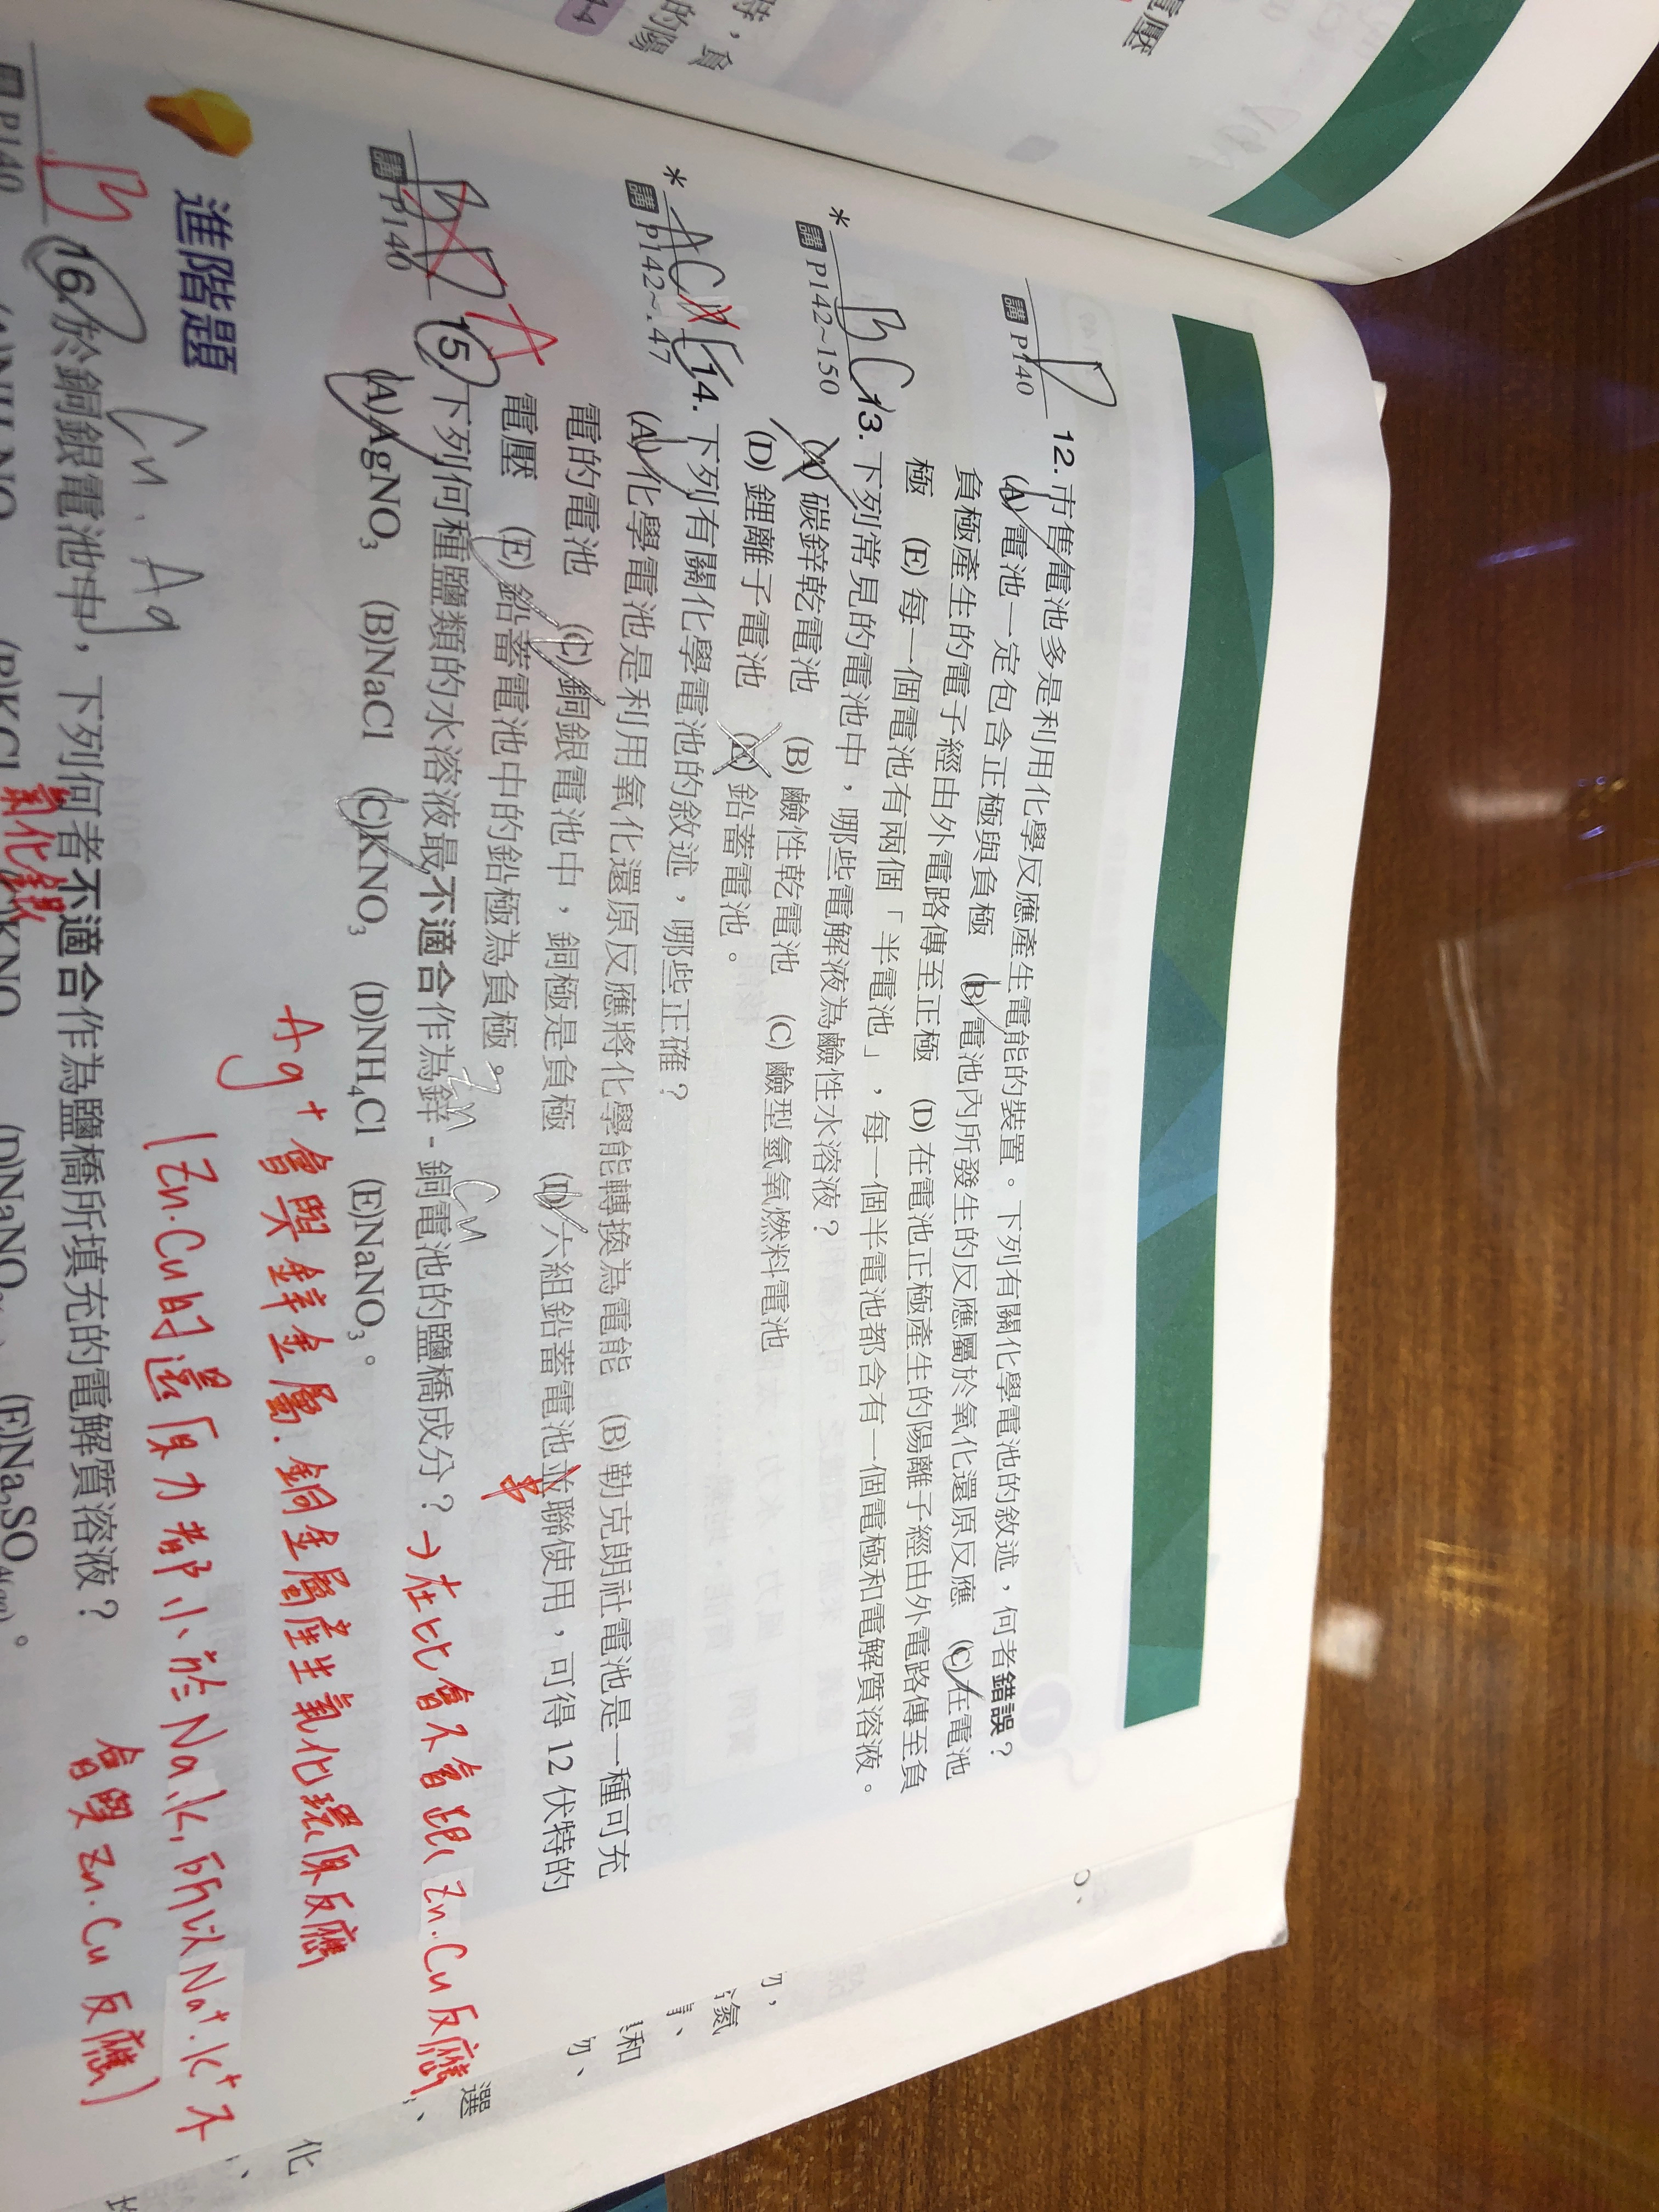 D 12. 市售電池多是利用化學反應產生電能的裝置。下列有關化學電池的敘述，何者錯誤？
講 P140 (A) 電池一定包含正極與負極 (B) 電池內所發生的反應屬於氧化還原反應 (C) 在電池
負極產生的電子經由外電路傳至正極 (D) 在電池正極產生的陽離子經由外電路傳至負
極 (E) 每一個電池有兩個「半電池」，每一個半電池都含有一個電極和電解質溶液。
* BC 13. 下列常見的電池中，哪些電解液為鹼性水溶液？
講 P142~150 (A) 碳鋅乾電池 (B) 鹼性乾電池 (C) 鹼型氫氧燃料電池
(D) 鋰離子電池 (E) 鉛蓄電池。
* AC E 14. 下列有關化學電池的敘述，哪些正確？
講 P142~147 (A) 化學電池是利用氧化還原反應將化學能轉換為電能 (B) 勒克朗社電池是一種可充
電的電池 (C) 銅銀電池中，銅極是負極 (D) 六組鉛蓄電池並聯使用，可得 12 伏特的
串
電壓 (E) 鉛蓄電池中的鉛極為負極。
Zn Cu
A 15. 下列何種鹽類的水溶液最不適合作為鋅 - 銅電池的鹽橋成分？ →在比會不會跟 Zn.Cu 反應
講 P140 (A)AgNO₃ (B)NaCl (C)KNO₃ (D)NH₄Cl (E)NaNO₃。
Ag⁺ 會與鋅金屬.銅金屬產生氧化還原反應
(Zn.Cu的還原力都小於 Na.K, 所以 Na⁺.K⁺ 不
會與 Zn.Cu 反應)
進階題
Cu . Ag
B 16. 於銅銀電池中，下列何者不適合作為鹽橋所填充的電解質溶液？
講 P140
氯化銀